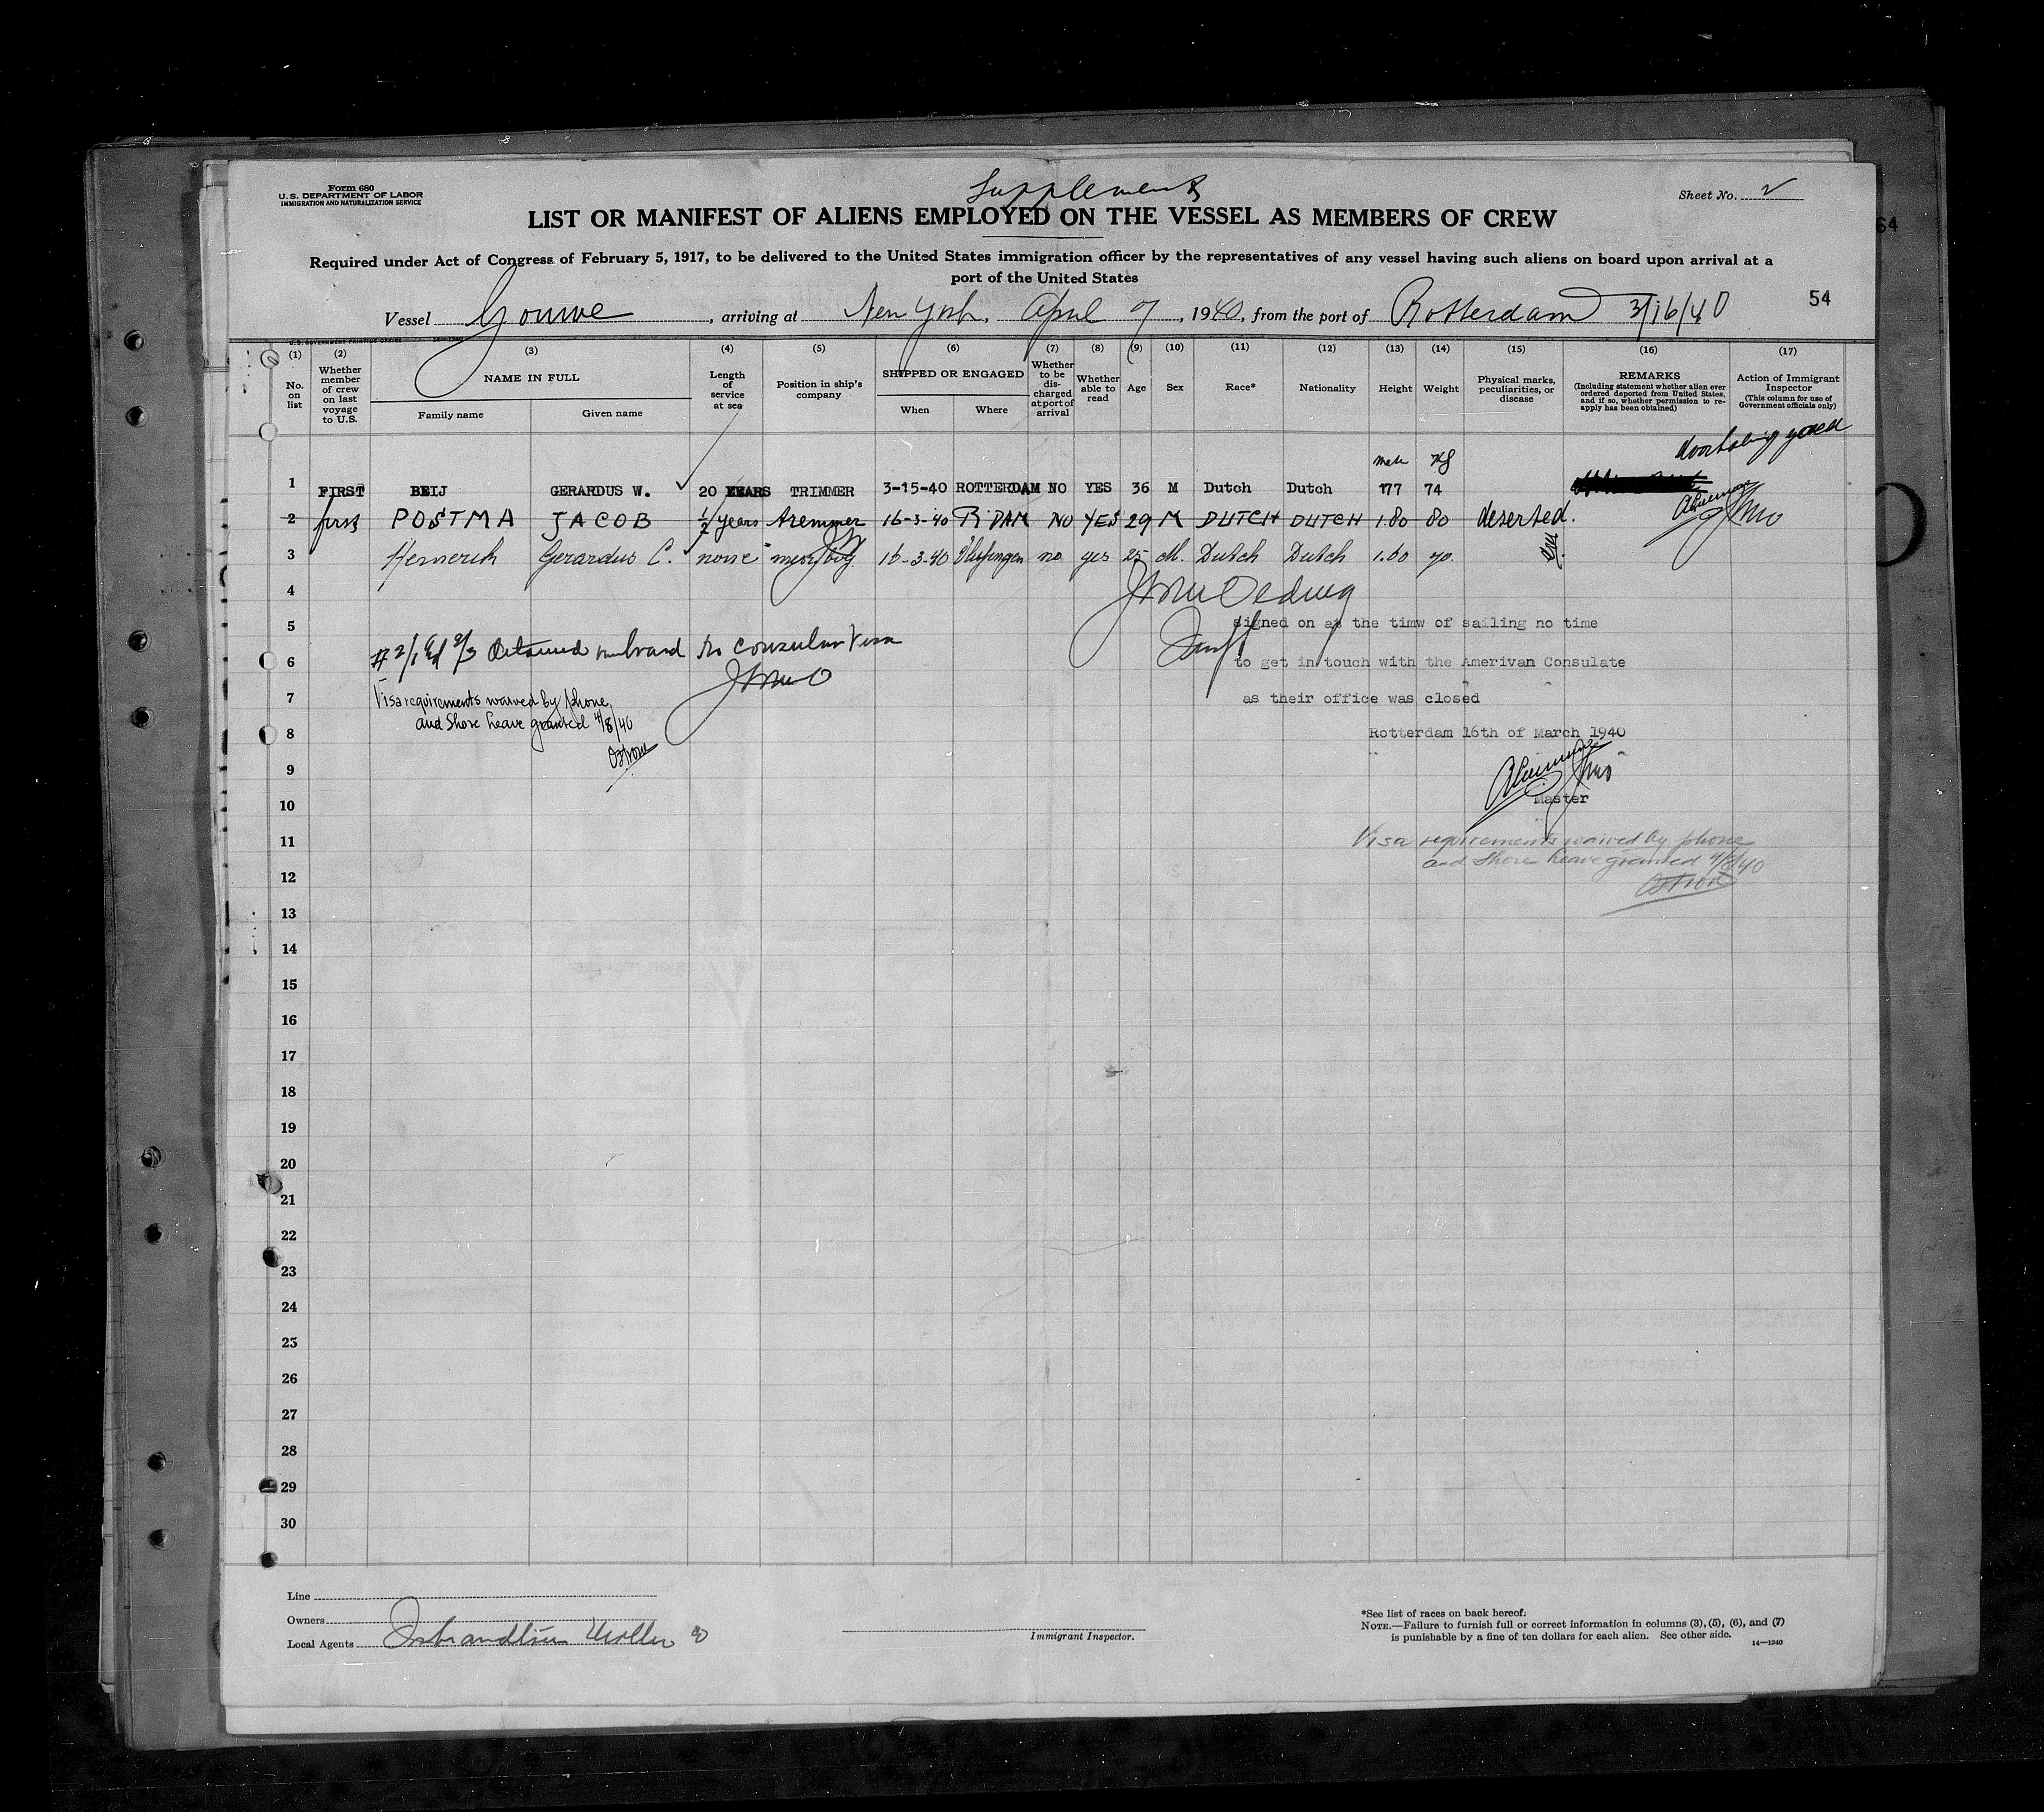 Form 680
U.S. DEPARTMENT OF LABOR
IMMIGRATION AND NATURALIZATION SERVICE
Supplement
Sheet No. 2
LIST OR MANIFEST OF ALIENS EMPLOYED ON THE VESSEL AS MEMBERS OF CREW
64
Required under Act of Congress of February 5, 1917, to be delivered to the United States immigration officer by the representatives of any vessel having such aliens on board upon arrival at a
port of the United States
54
Vessel Gouwe, arriving at New York, April 7, 1940, from the port of Rotterdam 3/16/40
U.S. GOVERNMENT PRINTING OFFICE
(1) (2) (3) (4) (5) (6) (7) (8) (9) (10) (11) (12) (13) (14) (15) (16) (17)
No. on list
Whether member of crew on last voyage to U.S.
NAME IN FULL
Family name
Given name
Length of service at sea
Position in ship's company
SHIPPED OR ENGAGED
When
Where
Whether to be discharged at port of arrival
Whether able to read
Age
Sex
Race*
Nationality
Height
Weight
Physical marks, peculiarities, or disease
REMARKS
(Including statement whether alien ever ordered deported from United States, and if so, whether permission to reapply has been obtained)
Action of Immigrant Inspector
(This column for use of Government officials only)
1 FIRST BEIJ GERARDUS W. 20 YEARS TRIMMER 3-15-40 ROTTERDAM NO YES 36 M Dutch Dutch 177 74
2 first POSTMA JACOB 1/2 years tremmer 16-3-40 R'DAM NO YES 29 M DUTCH DUTCH 1.80 80 deserted.
3 Gerardus C. none 16-3-40 no yes 25 M. Dutch Dutch 1.60 70.
4
5 signed on at the timw of sailing no time
6 to get in touch with the Amerivan Consulate
# 2/1 2/3 Detained onboard no consular visa
7 as their office was closed
Visa requirements waived by phone
and Shore leave granted 4/8/40
8 Rotterdam 16th of March 1940
9
10 Master
11 Visa requirements waived by phone
and Shore leave granted 4/8/40
12
13
14
15
16
17
18
19
20
21
22
23
24
25
26
27
28
29
30
Line
Owners
Local Agents Isbrandtsen Moller Co
Immigrant Inspector.
*See list of races on back hereof.
NOTE.—Failure to furnish full or correct information in columns (3), (5), (6), and (7)
is punishable by a fine of ten dollars for each alien. See other side.
14—1240